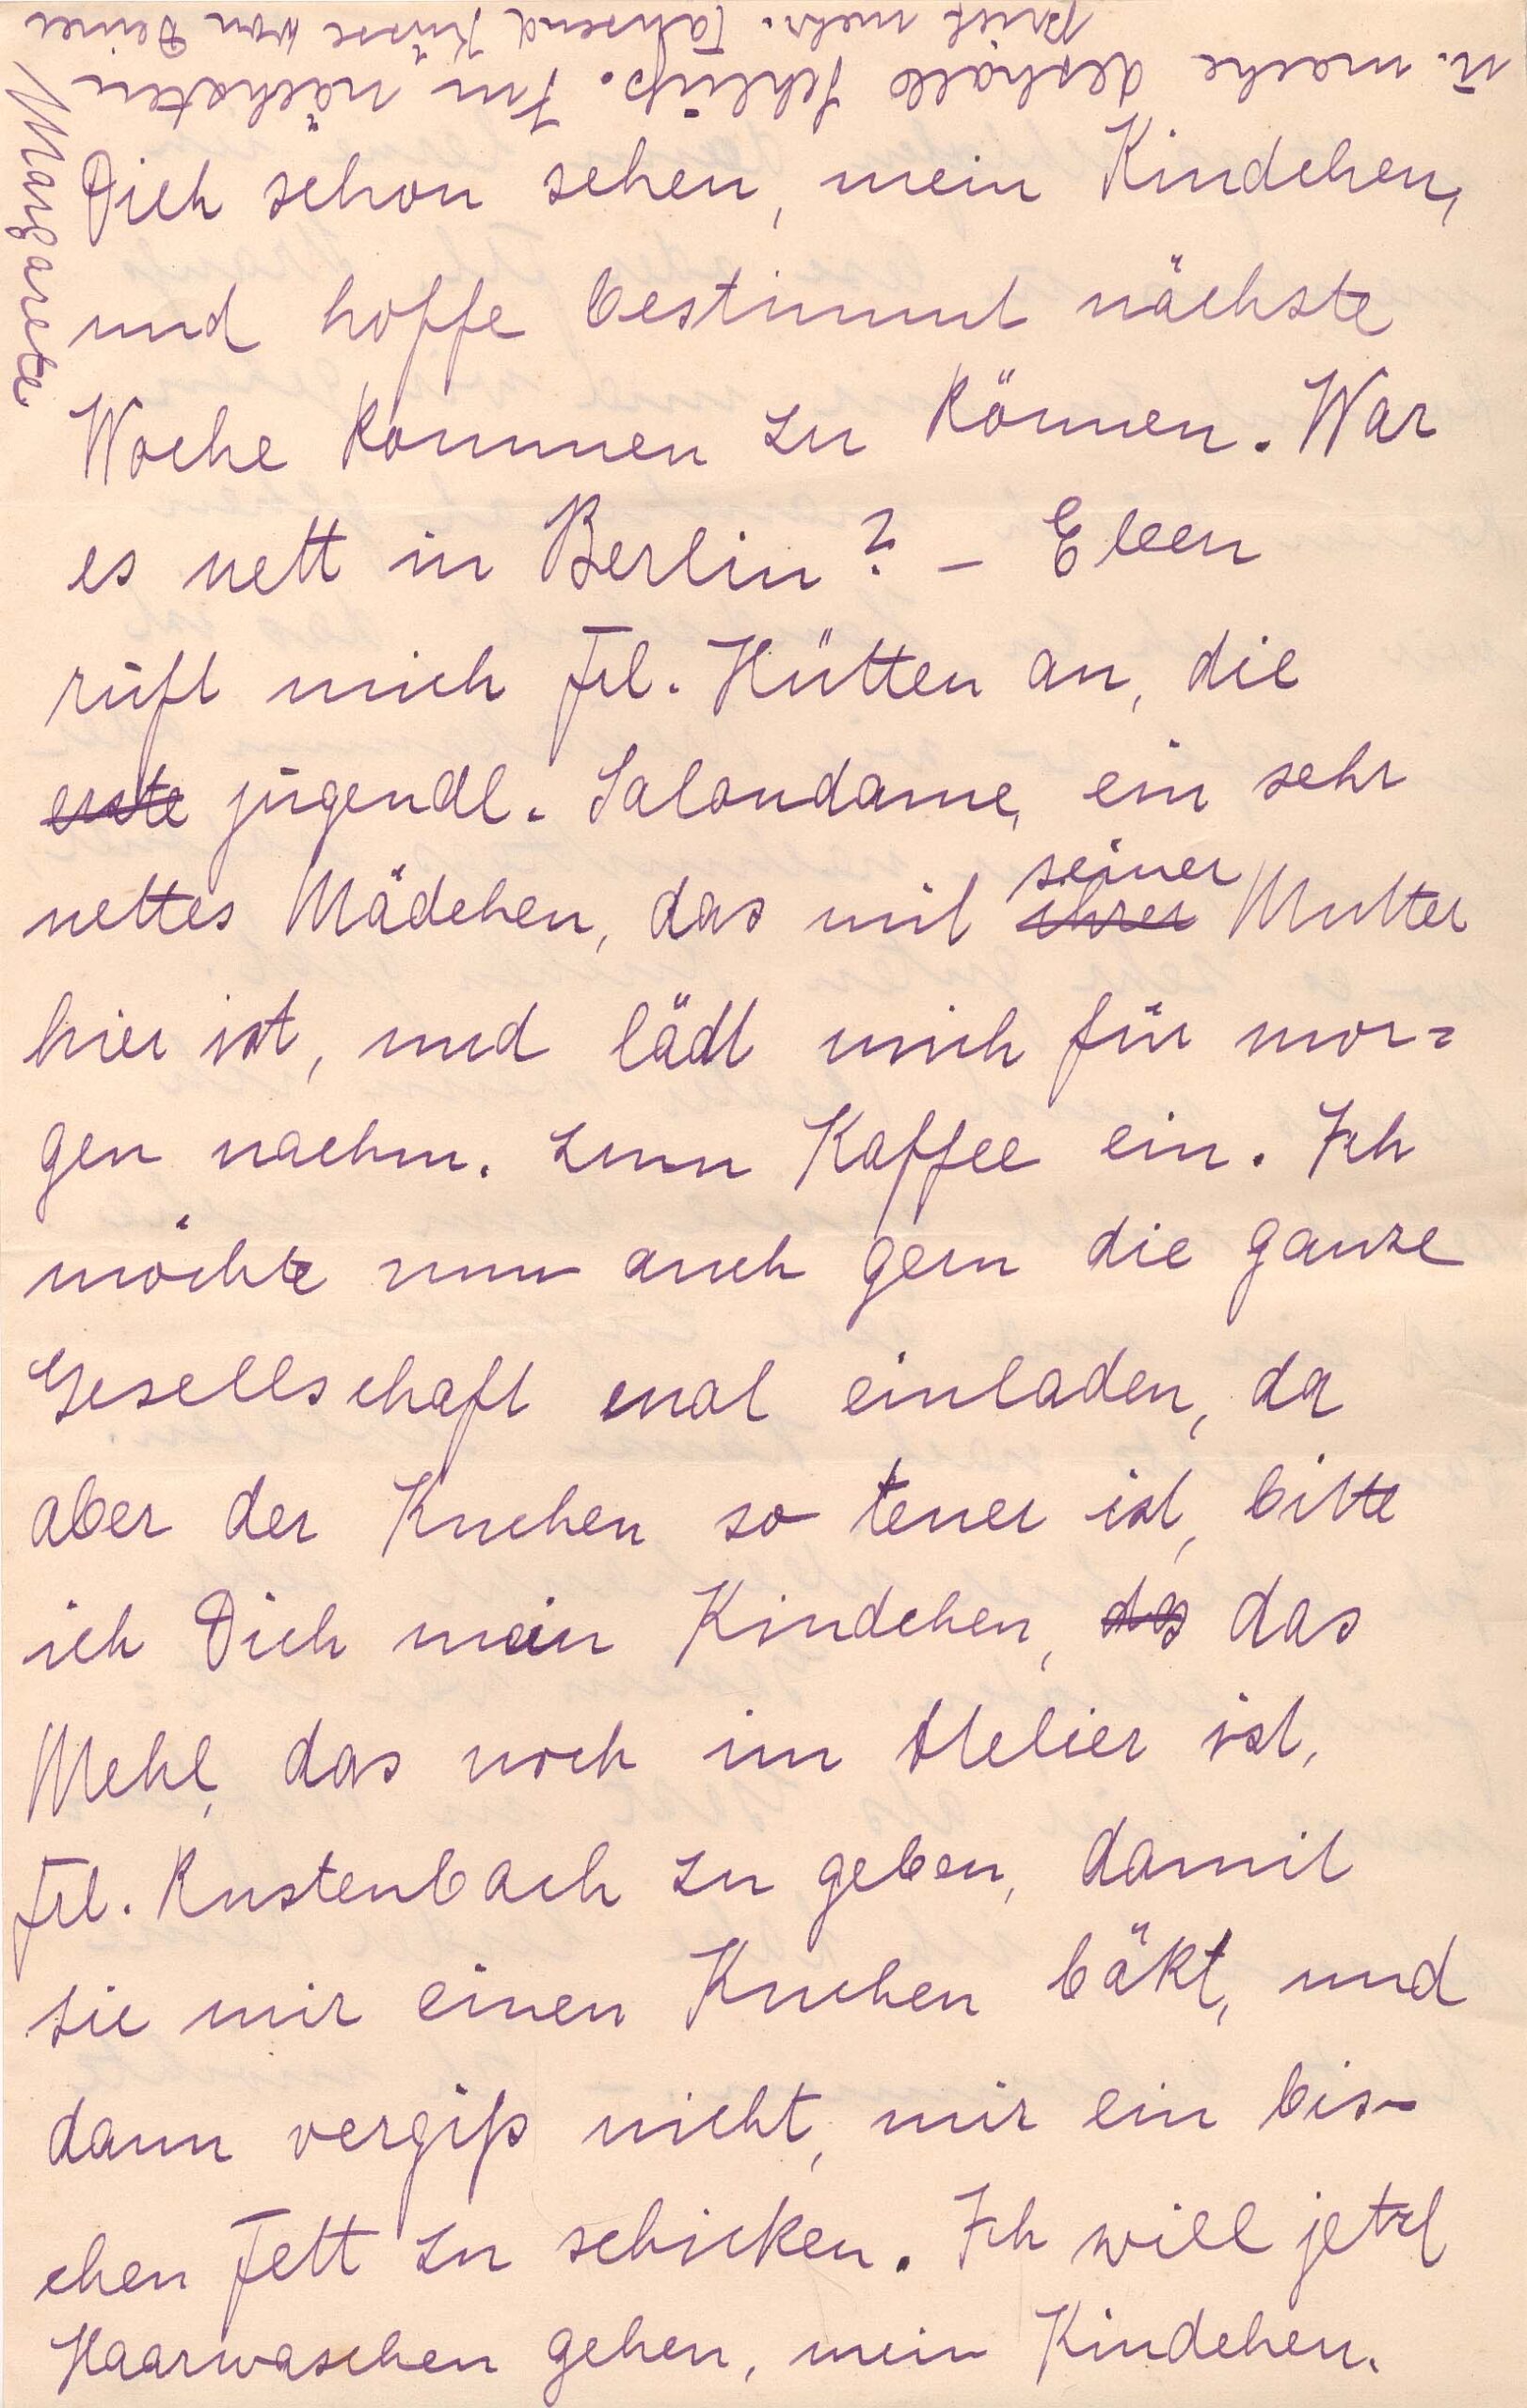 Dich schon sehen, mein Kindchen,
und hoffe bestimmt nächste
Woche kommen zu können. War
es nett in Berlin? – Eben
ruft mich Frl. Hütten an, die
erste jugendl. Salondame, ein sehr
nettes Mädchen, das mit ihrer seiner Mutter
hier ist, und lädt mich für mor=
gen nachm. zum Kaffee ein. Ich
möchte nun auch gern die ganze
Gesellschaft mal einladen, da
aber der Kuchen so teuer ist, bitte
ich Dich mein Kindchen, das das
Mehl, das noch im Atelier ist,
Frl. Kustenbach zu geben, damit
sie mir einen Kuchen bäkt, und
dann vergiß nicht, mir ein bis-
chen Fett zu schicken. Ich will jetzt
Haarwaschen gehen, mein Kindchen.
u. mache deshalb Schluß. Im nächsten
Brief mehr. Tausend Küsse von Deiner
Margarete